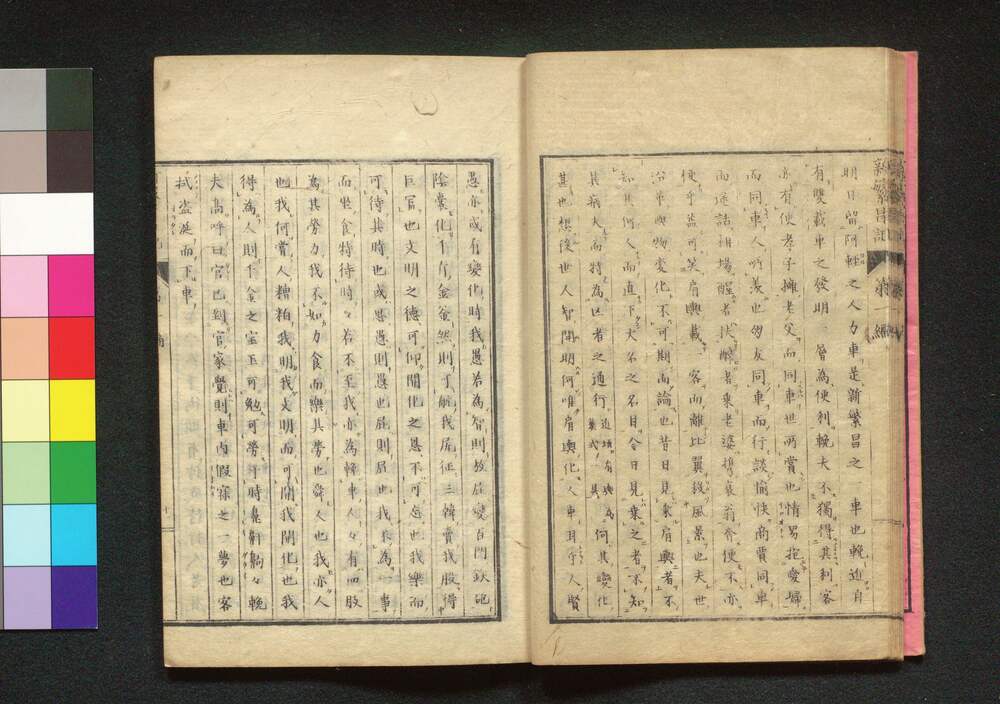 明日留阿軽之人力車是新繁昌之一車也輓近自
有雙載車之發明層為便利輓夫不獨得其利客
亦有便孝子擁老父而同車世所賞也情男抱愛婦
而同車人所羨也朋友同車而行談愉快商賈同車
而返話相場醒者扶醉者乗老婆携衰翁奇便不亦
便乎並可笑肩輿載客而離比翼殺風景也夫世
沿革與物変化不可期而論也昔日見乗肩輿者不
知其何人而直下大名之名目今日見乗之者不知
其病夫而特為凶者之通行
為何其變化
甚也想後世人智開明何唯肩輿化人車耳乎人賢
愚亦或有變化時我愚若為智則放屁變百門鉄砲
陰嚢化千斤金釜然則了航我尻征三韓賣我股得
巨官也文明之德可仰開化之恩不可忘也我樂而
可待其時也或思愚則愚也屁則屁也我不為一事
而坐食特待時々若不至我亦為輓車人々有四股
為其勞力我不如力食而樂其勞也舜人也我亦人
也我何嘗人糟粕我明我文明而可開我開化也我
得為人則千金之宝玉可勉可勞于時轟々輓
夫高呼曰官已到官家覺則車内假寐之一夢也客
拭盗涎而下車
新繁昌記 第二編